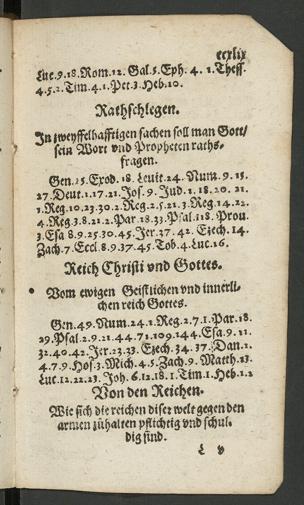 ccxlix
Luc.9.18. Rom.12. Gal.5. Eph. 4. 1. Thess.
4.5.2. Tim.4.1. Pet.3. Heb.10.
Rathschlegen.
In zweyffelhafftigen sachen soll man Gott/
sein Wort vnd Propheten raths-
fragen.
Gen.25. Exod.18. Leuit.24. Num.9.15.
27. Deut.1.17.21. Jos.9. Jud.1.18.20.21.
1. Reg.10.23.30.2. Reg.2.5.21.3. Reg.14.22.
4. Reg.3.8.21.2. Par.18.33. Psal.118. Prou.
3. Esa 8.9.25.30.45. Jer.37.42. Ezech.14.
Zach.7. Eccl.8.9.37.45. Tob.4. Luc.16.
Reich Christi vnd Gottes.
Vom ewigen Geistlichen vnd innerli-
chen reich Gottes.
Gen.49. Num.24.1. Reg.2.7.1. Par.18.
29. Psal.2.9.21.44.71.109.144. Esa.9.11.
32.40.42. Jer.23.33. Ezech.34.37. Dan.2.
4.7.9. Hos.3. Mich.4.5. Zach.9. Matth.13.
Luc.12.22.23. Joh.6.12.18.1. Tim.1. Heb.1.2
Von den Reichen.
Wie sich die reichen diser welt gegen den
armen zůhalten pflichtig vnd schul-
dig sind.
L v